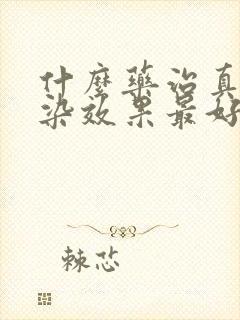 什麼藥治真
染效果最好
棘芯